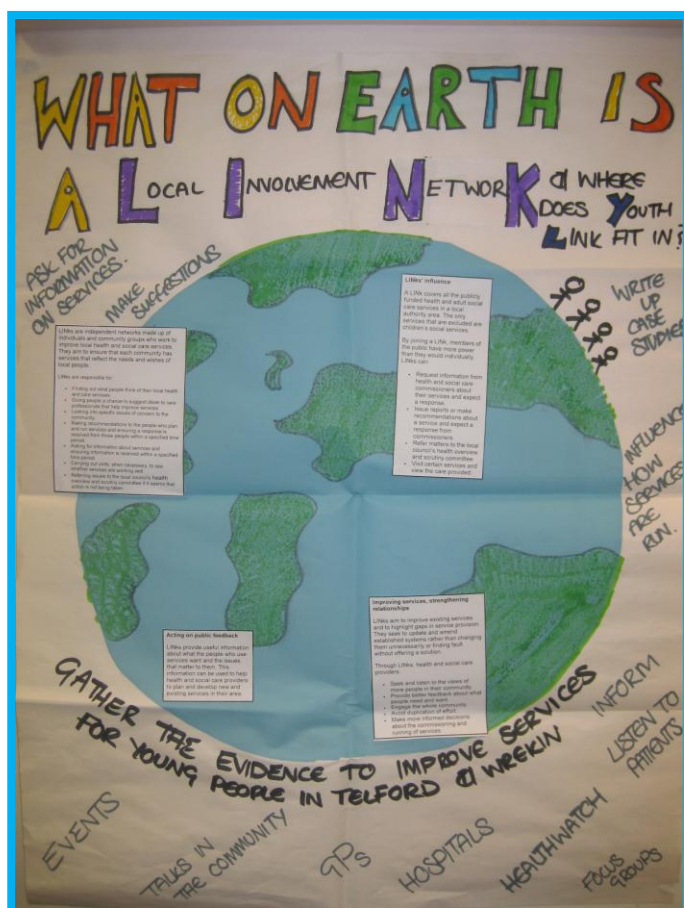 WHAT ON EARTH IS
A LOCAL INVOLVEMENT NETWORK & WHERE
DOES YOUTH
LINK FIT IN?
ASK FOR
INFORMATION
ON SERVICES.
MAKE
SUGGESTIONS
WRITE
UP
CASE
STUDIES
INFLUENCE
HOW
SERVICES
ARE
RUN.
LINks are independent networks made up of
individuals and community groups who work to
improve local health and social care services.
They aim to ensure that each community has
services that reflect the needs and wishes of
local people.
LINks are responsible for:
Finding out what people think of their local health
and care services.
Giving people a chance to suggest ideas to care
professionals that help improve services.
Looking into specific issues of concern to the
community.
Making recommendations to the people who plan
and run services and ensuring a response is
received from those people within a specified time
period.
Asking for information about services and
ensuring information is received within a specified
time period.
Carrying out visits, when necessary, to see
whether services are working well.
Referring issues to the local council's health
overview and scrutiny committee if it seems that
action is not being taken.
LINks' influence
A LINk covers all the publicly
funded health and adult social
care services in a local
authority area. The only
services that are excluded are
children's social services.
By joining a LINk, members of
the public have more power
than they would individually.
LINks can:
Request information from
health and social care
commissioners about
their services and expect
a response.
Issue reports or make
recommendations about
a service and expect a
response from
commissioners.
Refer matters to the local
council's health overview
and scrutiny committee.
Visit certain services and
view the care provided.
Acting on public feedback
LINks provide useful information
about what the people who use
services want and the issues
that matter to them. This
information can be used to help
health and social care providers
to plan and develop new and
existing services in their area.
Improving services, strengthening
relationships
LINks aim to improve existing services
and to highlight gaps in service provision.
They seek to update and amend
established systems rather than changing
them unnecessarily or finding fault
without offering a solution.
Through LINks, health and social care
providers:
Seek and listen to the views of
more people in their community.
Provide better feedback about what
people need and want.
Engage the whole community.
Avoid duplication of effort.
Make more informed decisions
about the commissioning and
running of services.
GATHER THE EVIDENCE TO IMPROVE SERVICES
FOR YOUNG PEOPLE IN TELFORD & WREKIN
INFORM
LISTEN TO
PATIENTS
EVENTS
TALKS IN
THE COMMUNITY
GPs
HOSPITALS
HEALTHWATCH
FOCUS
GROUPS